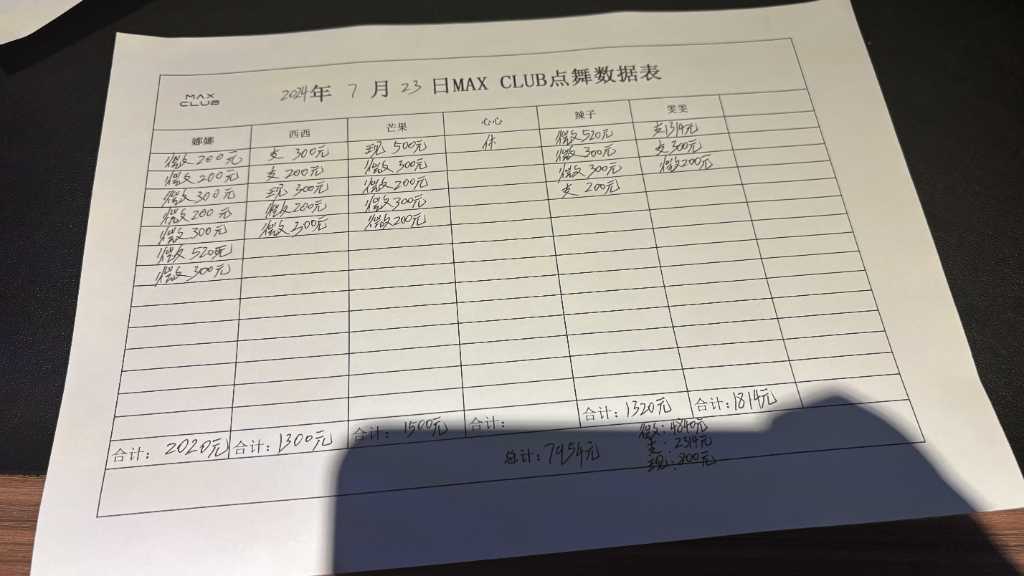 MAX
CLUB
2024年 7 月 23 日MAX CLUB点舞数据表
娜娜 西西 芒果 心心 辣子 雯雯
微支 200元 支 300元 现 500元 休 微支520元 支1314元
微支 200元 支 200元 微支 300元 微支 300元 支 300元
微支 300元 现 300元 微支 200元 微支 300元 微支200元
微支 200元 微支 200元 微支300元 支 200元
微支 300元 微支 300元 微支200元
微支 520元
微支 300元
合计: 2020元 合计: 1300元 合计: 1500元 合计: 合计: 1320元 合计: 1814元
总计: 7954元
微支: 4840元
支: 2314元
现: 800元